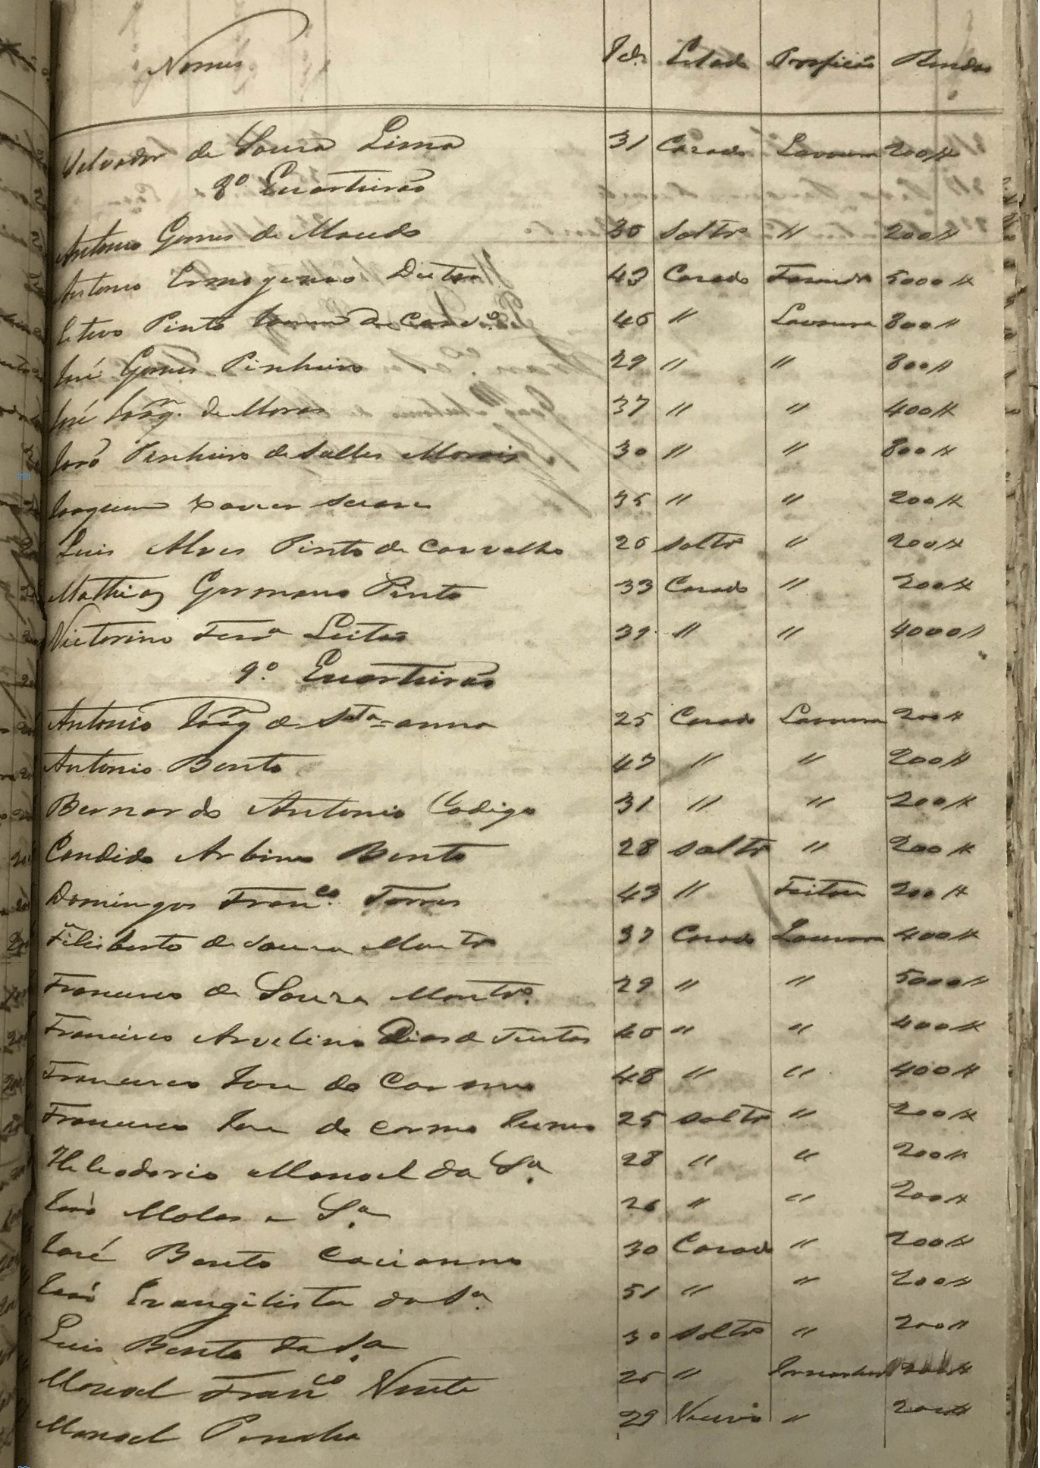 Nomes Id.e Estado Proffição Rendas
Salvador de Souza Lima 31 Casado Lavoura 200#
8º Quarteirão
Antonio Gomes de Macedo 30 Soltrº " 200#
Antonio Ermogenes Dutra 43 Casado Fazendrº 5000#
Estevo Pinto de Carvº 46 " Lavoura 800#
José Gomes Pinheiro 29 " " 800#
José Joaqm. de Moraes 37 " " 400#
João Pinheiro de Salles Morais 30 " " 800#
Joaquim Xavier 35 " " 200#
Luis Alves Pinto de Carvalho 26 Soltrº " 200#
Mathias Germano Pinto 33 Casado " 200#
Victorino Ferrª Leitão 39 " " 4000#
9º Quarteirão
Antonio Joaqm de Sta anna 25 Casado Lavoura 200#
Antonio Bento 47 " " 200#
Bernardo Antonio Codigo 31 " " 200#
Candido Arbino Bento 28 Soltrº " 200#
Domingos Franco. Torres 43 " Feitor 200#
Feliberto de Souza Montrº 37 Casado Lavoura 400#
Francisco de Souza Montrº 29 " " 5000#
Francisco Avelino Dias de Freitas 40 " " 400#
Francisco José do Carmo 48 " " 400#
Francisco José do Carmo Junior 25 Soltrº " 200#
Heleodorio Manoel da Sª 28 " " 200#
João e Sª 26 " " 200#
José Bento Caeianno 30 Casado " 200#
João Evangelista da Sª 51 " " 200#
Luis Bento da Sª 30 Soltrº " 200#
Manoel Franco " 200#
Manoel Penha 29 Viuvo " 200#